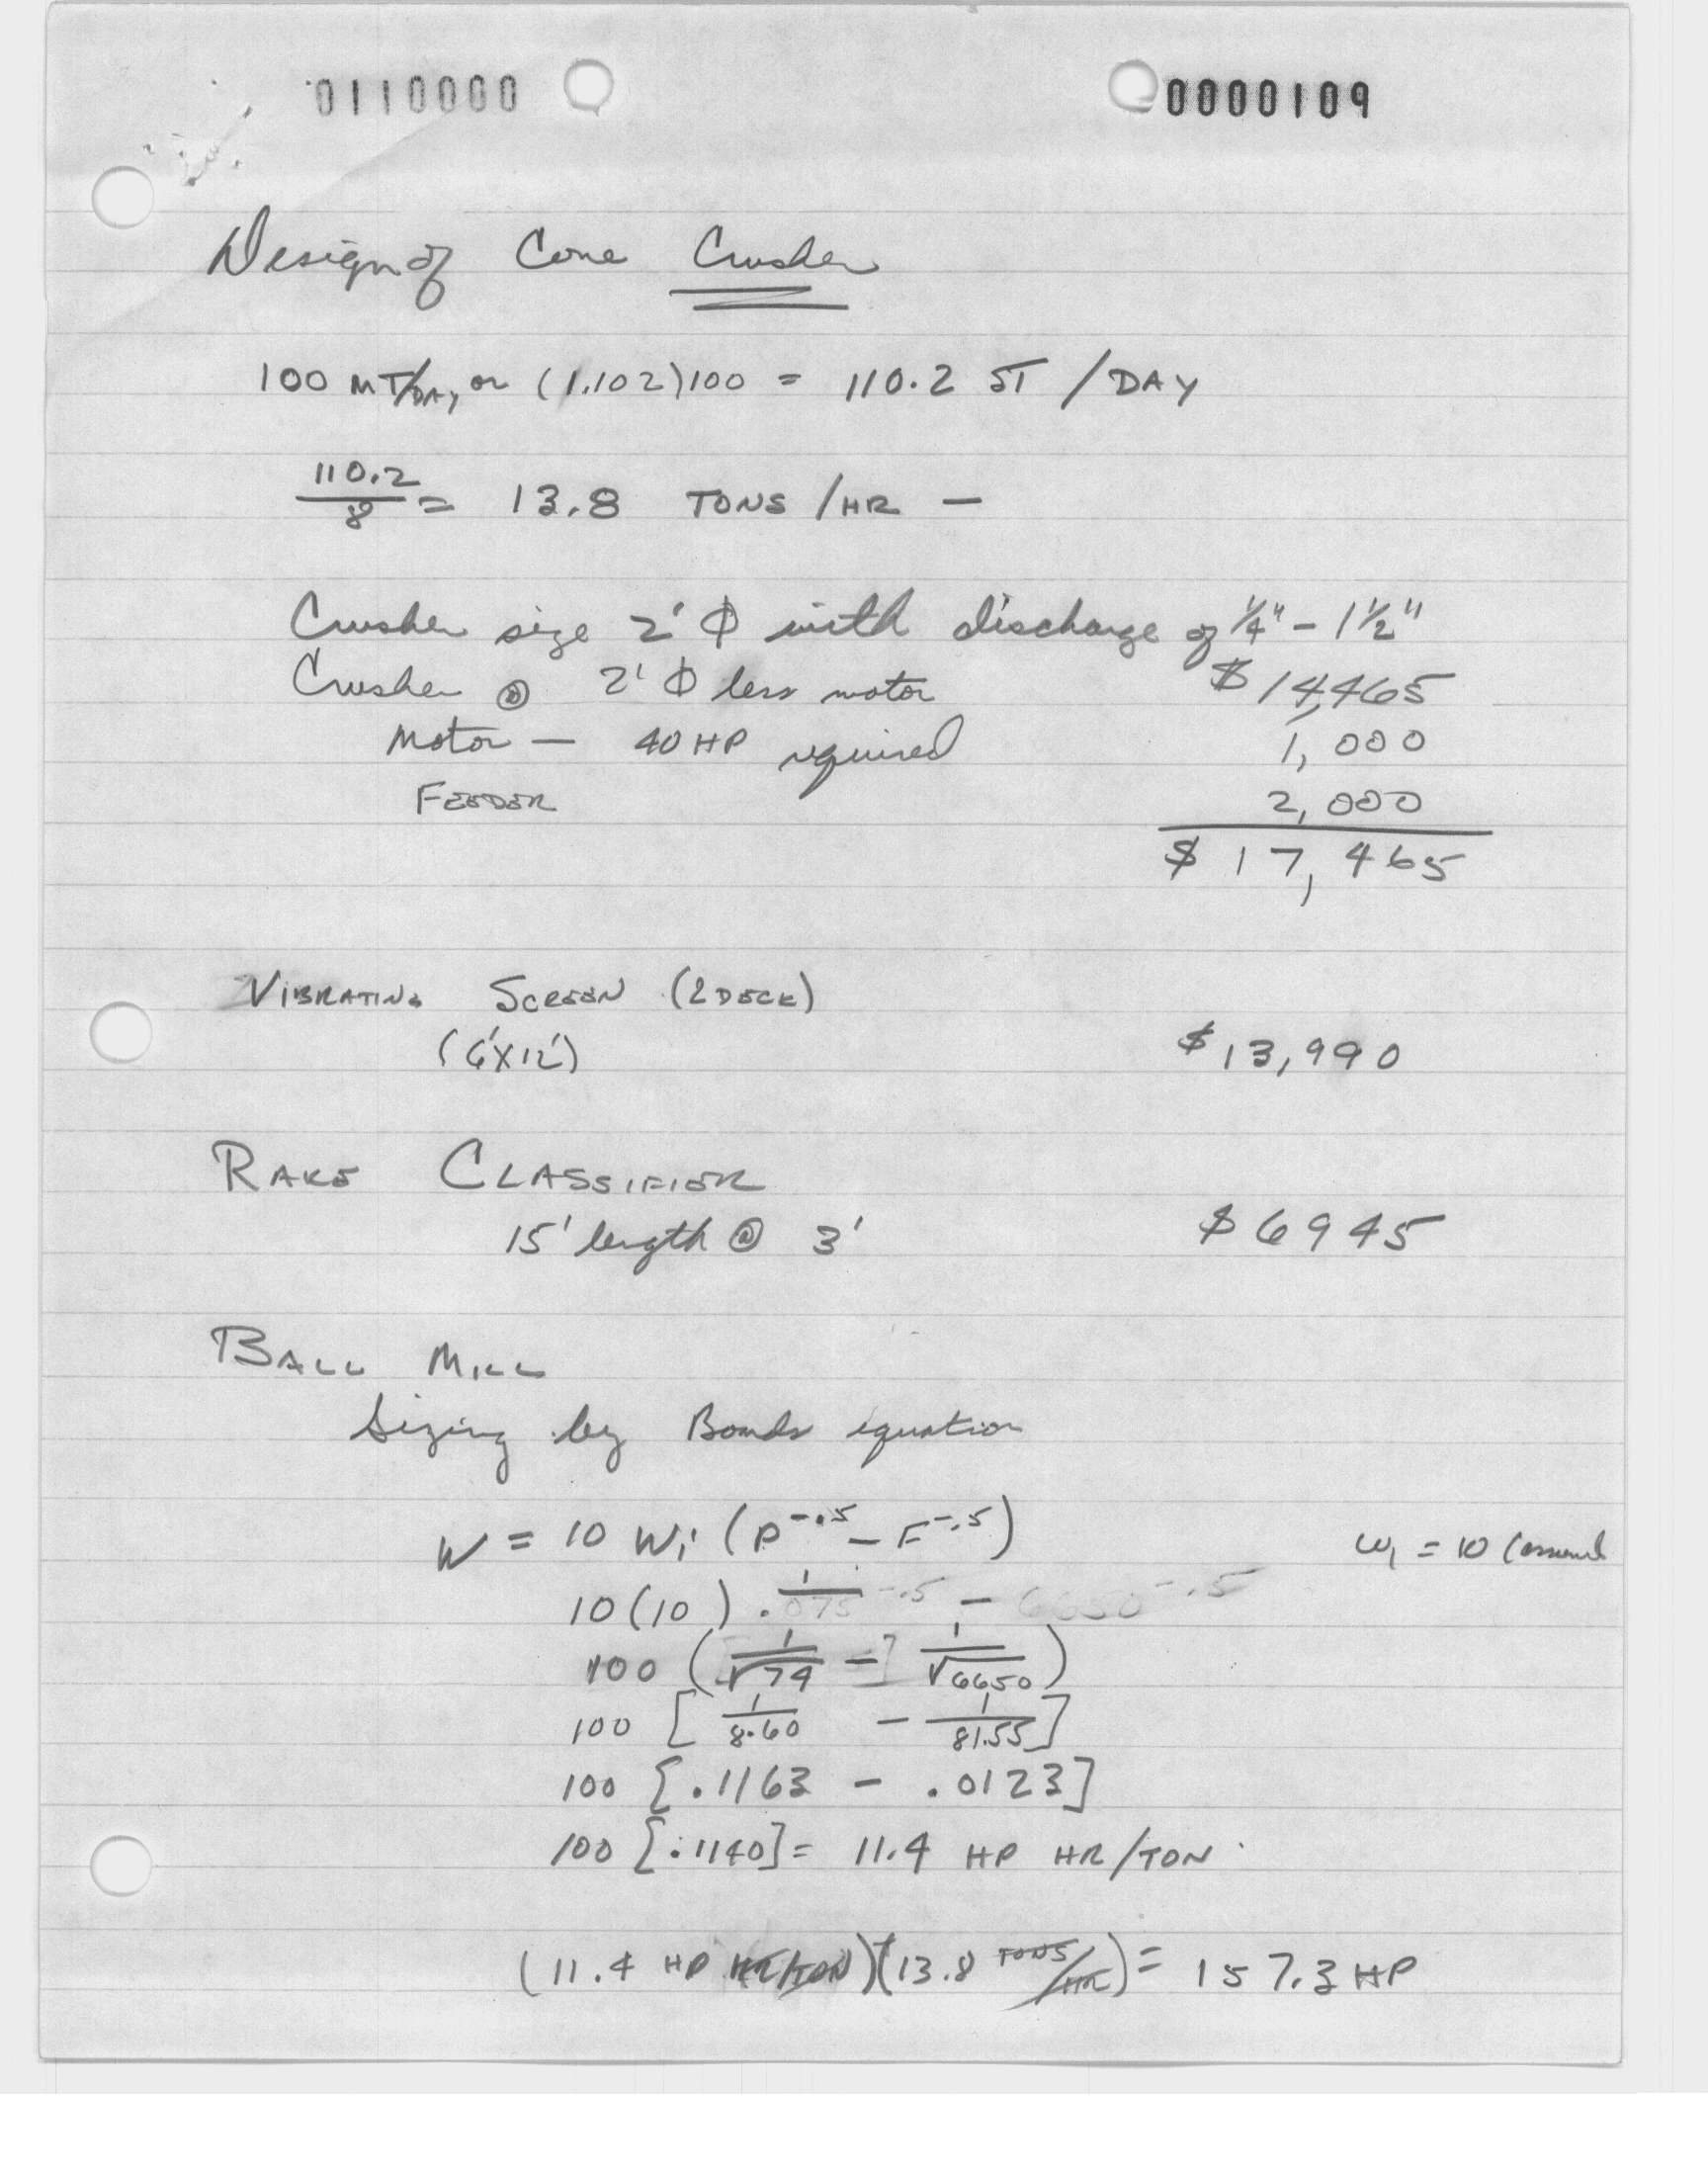 0110000 0000109
Design of Cone Crusher
100 MT/DAY or (1.102)100 = 110.2 ST / DAY
110.2/8 = 13.8 TONS / HR —
Crusher size 2' Φ with discharge of 1/4" - 1 1/2"
Crusher @ 2' Φ less motor $14,465
Motor — 40 HP required 1,000
FEEDER 2,000
$ 17,465
VIBRATING SCREEN (2 DECK)
(6'X12') $13,990
RAKE CLASSIFIER
15' length @ 3' $6945
BALL MILL
Sizing by Bonds equation
W = 10 Wi (P^-.5 - F^-.5) Wi = 10 (assumed
10(10) . 1/075^-.5 - 6650^-.5
100 ( 1/√74 - 1/√6650 )
100 [ 1/8.60 - 1/81.55 ]
100 [.1163 - .0123]
100 [.1140] = 11.4 HP HR/TON
(11.4 HP HR/TON)(13.8 TONS/HR) = 157.3 HP